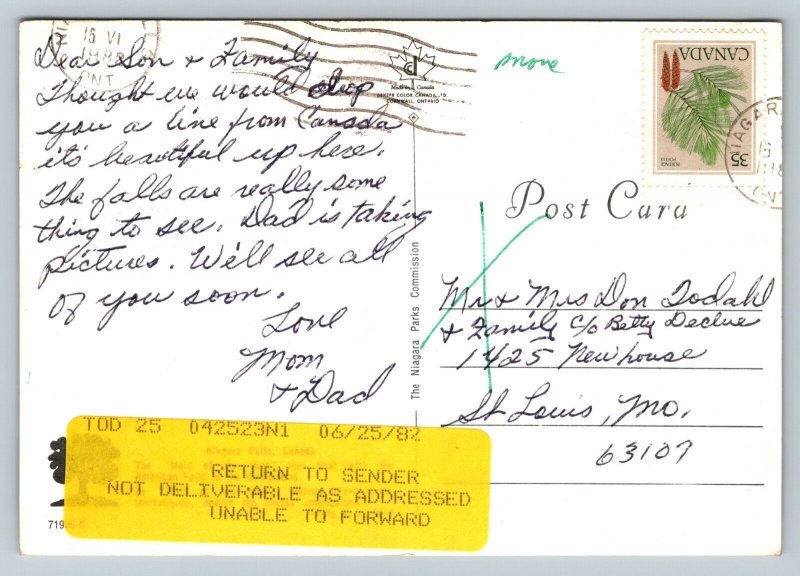 15 VI
ONT
Dear Son & Family
Thought we would drop
you a line from Canada
it's beautiful up here.
The falls are really some
thing to see. Dad is taking
pictures. We'll see all
of you soon.
Love
Mom
& Dad
CORNWALL, ONTARIO
The Niagara Parks Commission
move
CANADA
POSTAGE
POSTES
35
Post Card
Mr & Mrs Don Todahl
& Family c/o Betty Declue
1425 Newhouse
St Louis, Mo.
63107
TOD 25 042523N1 06/25/82
RETURN TO SENDER
NOT DELIVERABLE AS ADDRESSED
UNABLE TO FORWARD